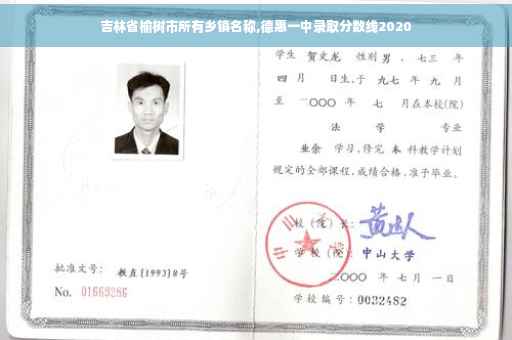 吉林省榆树市所有乡镇名称,德惠一中录取分数线2020
学生 贺文龙 性别 男 、七三 年
四 月 日生,于 九七 年 九 月
至 二〇〇〇 年 七 月在本校(院)
法 学 专业
业余 学习,修完 本 科教学计划
规定的全部课程,成绩合格,准予毕业。
校(院)长:
学校(院): 中山大学
二〇〇〇 年 七 月 一 日
学校编号:0032482
批准文号: 教直(1993)8号
No. 01669286